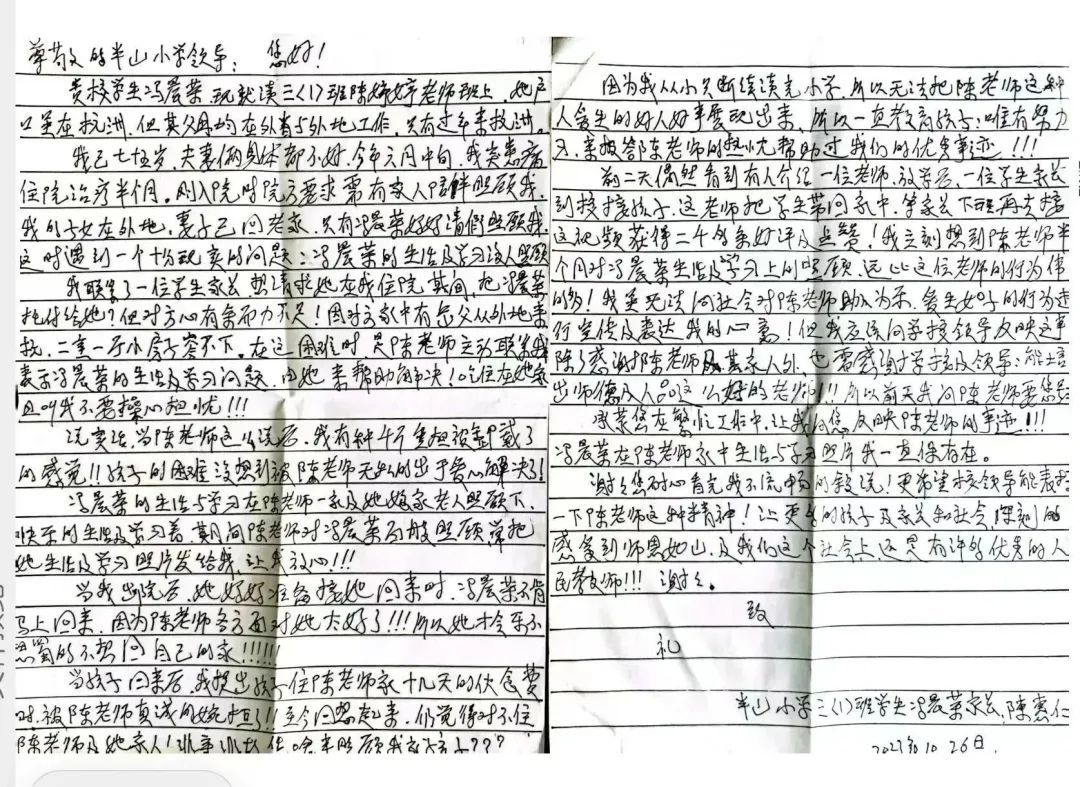 尊敬的半山小学领导： 您好！
贵校学生冯晨荣现就读三〈1〉班陈婷婷老师班上，她户
口虽在杭洲，但其父母均在外省与外地工作，只有过年来杭洲。
我已七十五岁，夫妻俩身体都不好，今年六月中旬，我突患病
住院治疗半月。刚入院时院方要求需有家人陪伴照顾我，
我的子女在外地，妻子已回老家，只有冯晨荣好好请假照顾我，
这时遇到一个十分现实的问题：冯晨荣的生活及学习该人照顾
我联系了一位学生家长想请求她在我住院其间，把冯晨荣
托付给她？但对方心有余而力不足！因对方家中有 父从外地来
杭，二室一厅小房子容不下。在这困难时，是陈老师主动联系我
表示冯晨荣的生活及学习问题，由她来帮助解决！吃住在她家
且叫我不要操心担忧！！！
说实话，当陈老师这么说后，我有种千斤重担被卸载了
的感觉！！孩子的困难没想到被陈老师无私的出于爱心解决了！
冯晨荣的生活与学习在陈老师一家及她娘家老人照顾下，
快乐的生活及学习着，其间陈老师对冯晨荣百般照顾常把
她生活及学习照片发给我，让我放心！！！
当我出院后，她好好准备接她回来时，冯晨荣不肯
马上回来，因为陈老师各方面对她太好了！！！所以她才会乐不
思蜀的不想回自己的家！！！！！！
当孩子回来后，我提出孩子住陈老师家十几天的伙食费
时，被陈老师真诚的婉拒了！！至今回想起来，仍觉得对不住
陈老师及她亲人！非事非故 照顾我家孩子？？？
因为我从小只断续读完小学，所以无法把陈老师这种
人爱生的好人好事展现出来，所以一直教育孩子：唯有努力
习，来报答陈老师的热忱帮助过我们的优秀事迹！！！
前二天偶然看到有人介绍一位老师，放学后，一位学生家长
到校接孩子，这老师把学生带回家中，等家长下班再去接
这视频获得二千多条好评及点赞！我立刻想到陈老师半
个月对冯晨荣生活及学习上的照顾，远比这位老师的行为伟
的多！我虽无法向社会对陈老师助人为乐、爱生如子的行为进
行宣传及表达我的心意！但我应该向学校领导反映这事
除了感谢陈老师及其家人外，也需感谢学校及领导：能培
出师德及人品这么好的老师！！！所以前天我问陈老师要您
承蒙您在繁忙工作中，让我向您反映陈老师的事迹！！！
冯晨荣在陈老师家中生活与学习照片我一直保存在。
谢谢您耐心看完我不流中 的叙说！更希望校领导能表扬
一下陈老师这种精神！让更多的孩子及家长和社会，深刻的
感受到师恩如山，及我们这个社会上还是有许多优秀的人
民教师！！！ 谢谢。
致
礼
半山小学三〈1〉班学生冯晨荣家长，陈惠仁
10．26日．